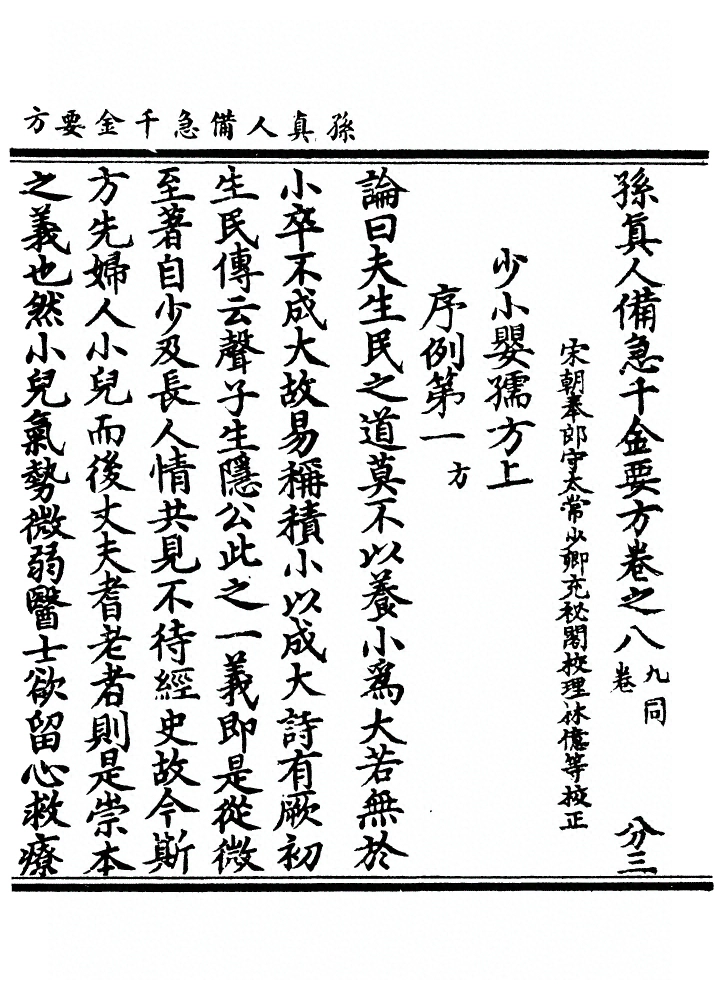 孫真人備急千金要方
孫真人備急千金要方卷之八 九同卷 分三
宋朝奉郎守太常少卿充秘閣校理林億等校正
少小嬰孺方上
序例第一 方
論曰夫生民之道莫不以養小爲大若無於
小卒不成大故易稱積小以成大詩有厥初
生民傳云聲子生隱公此之一義即是從微
至著自少及長人情共見不待經史故今斯
方先婦人小兒而後丈夫耆老者則是崇本
之義也然小兒氣勢微弱醫士欲留心救療